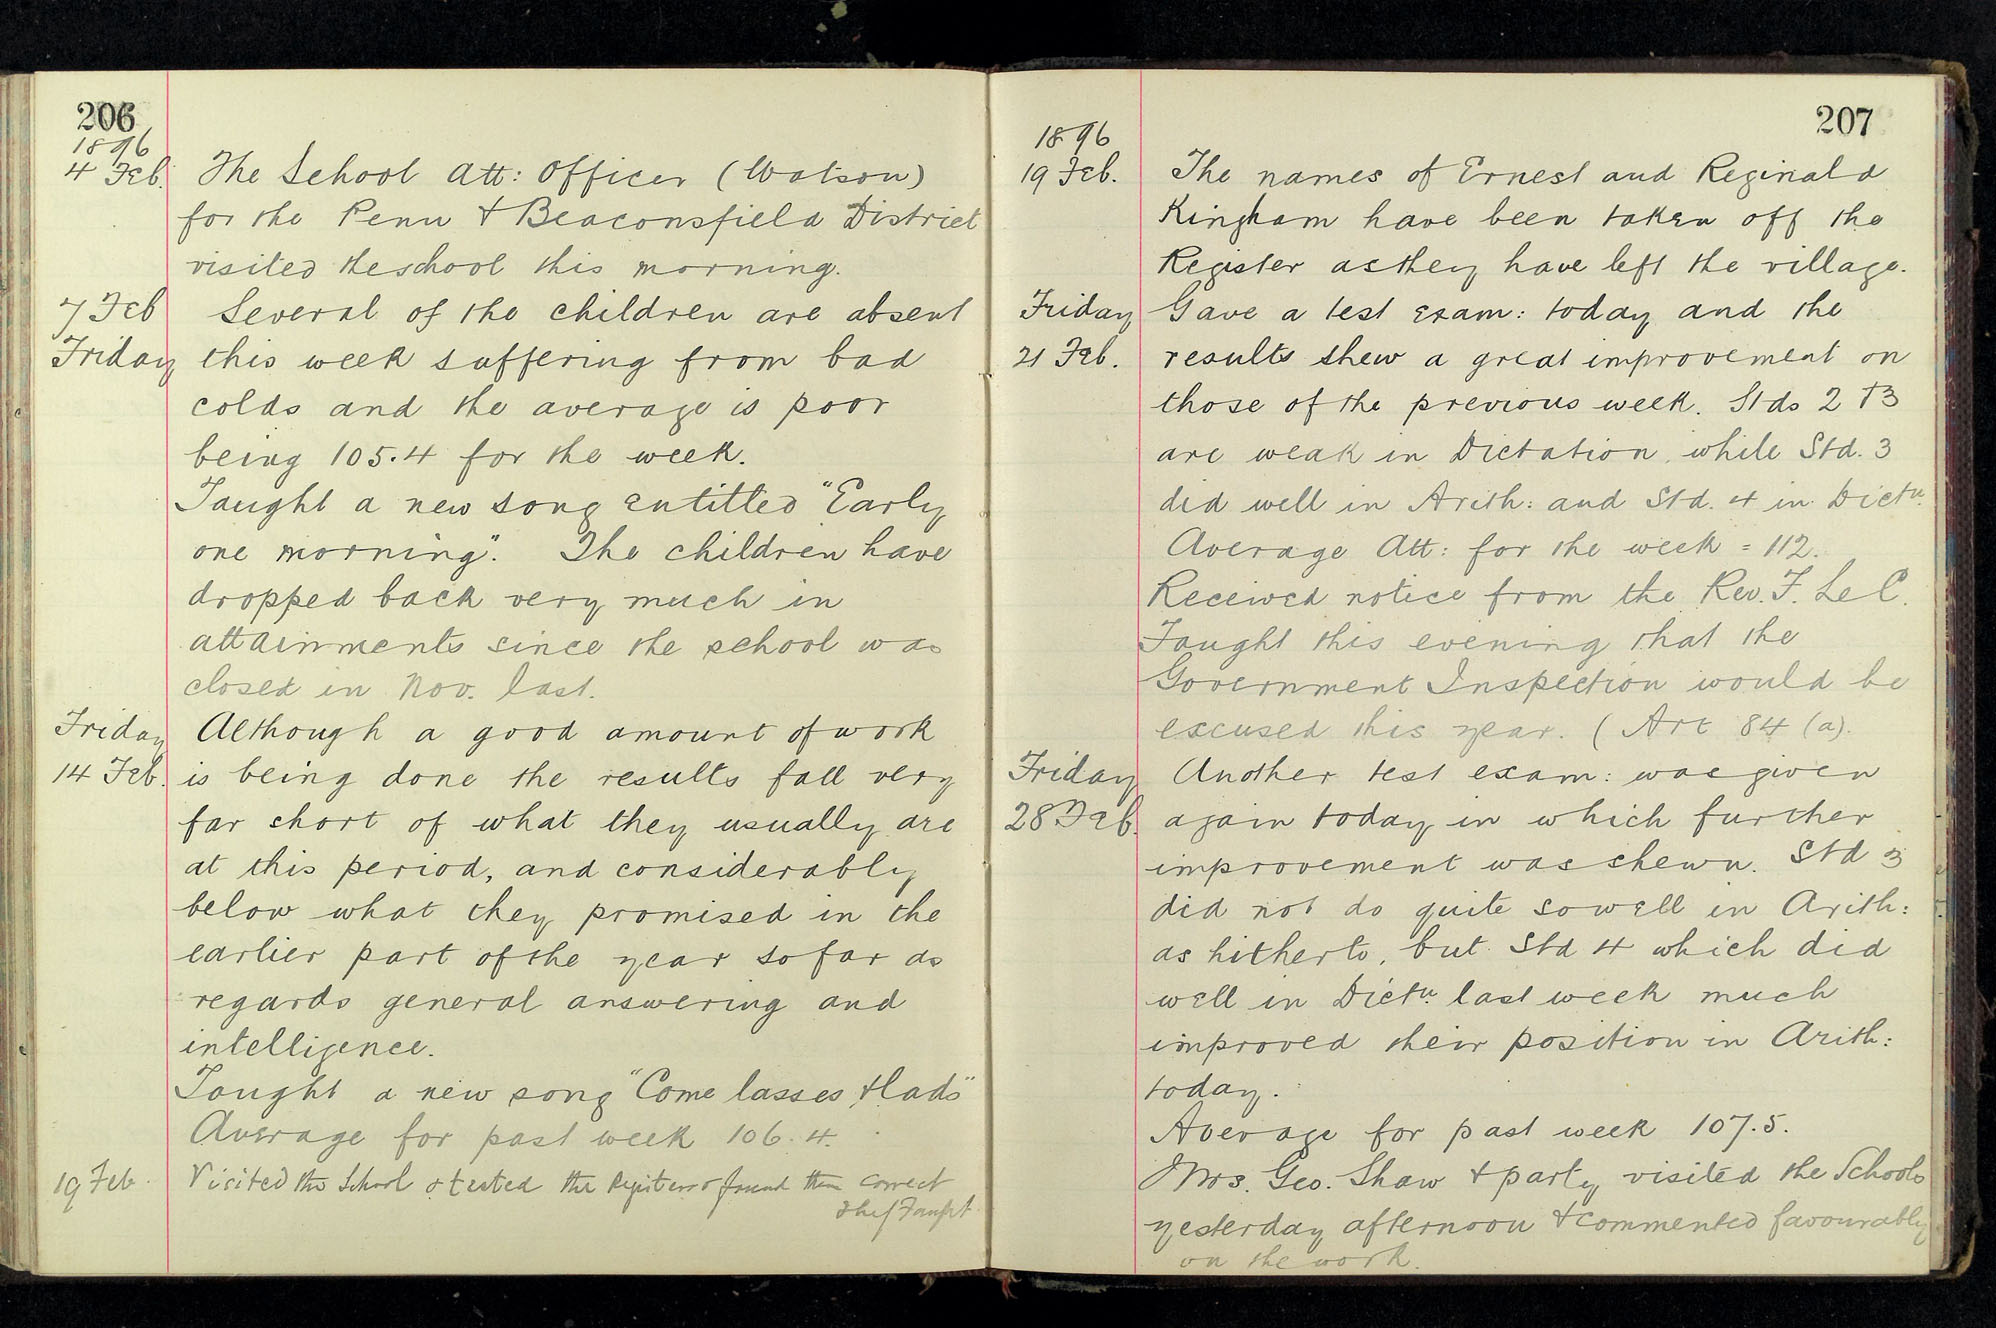 206
1896
4 Feb. The School Att: Officer (Watson)
for the Penn & Beaconsfield District
visited the school this morning.
7 Feb Several of the children are absent
Friday this week suffering from bad
colds and the average is poor
being 105.4 for the week.
Taught a new song entitled "Early
one morning". The children have
dropped back very much in
attainments since the school was
closed in Nov. last.
Friday Although a good amount of work
14 Feb. is being done the results fall very
far short of what they usually are
at this period, and considerably
below what they promised in the
earlier part of the year so far as
regards general answering and
intelligence.
Taught a new song "Come lasses & lads"
Average for past week 106.4.
19 Feb. Visited the School & tested the Registers & found them correct
207
1896
19 Feb. The names of Ernest and Reginald
Kingham have been taken off the
Register as they have left the village.
Friday Gave a test exam: today and the
21 Feb. results shew a great improvement on
those of the previous week. Stds 2 & 3
are weak in Dictation, while Std. 3
did well in Arith: and Std. 4 in Dictn.
Average Att: for the week = 112.
Received notice from the Rev. F. Le C.
Faught this evening that the
Government Inspection would be
excused this year. (Art 84 (a).
Friday Another test exam: was given
28 Feb. again today in which further
improvement was shewn. Std 3
did not do quite so well in Arith:
as hitherto, but Std 4 which did
well in Dictn. last week much
improved their position in Arith:
today.
Average for past week 107.5.
Mrs. Geo. Shaw & party visited the Schools
yesterday afternoon & commented favourably
on the work.